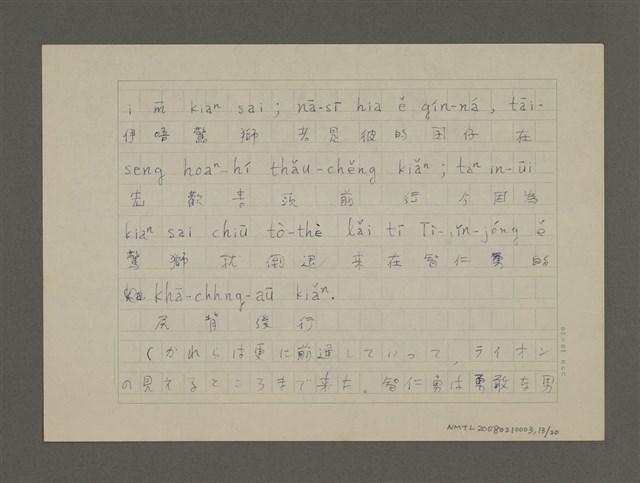 i m̄ kiaⁿ sai; nā-sī hia ě gín-ná, tāi-
伊唔驚獅 若是彼的囝仔 在
seng hoaⁿ-hí thǎu-chěng kiǎⁿ; taⁿ in-ūi
先歡喜頭前行 今因為
kiaⁿ sai chiū tò-thè lǎi tī Tì-jîn-jóng ě
驚獅就倒退來在智仁勇的
khā-chhng-aū kiǎⁿ.
尻背後行
(かれらは更に前通していって、ライオン
の見えるところまで来た。智仁勇は勇敢な男
NMTL20080210003,13/20